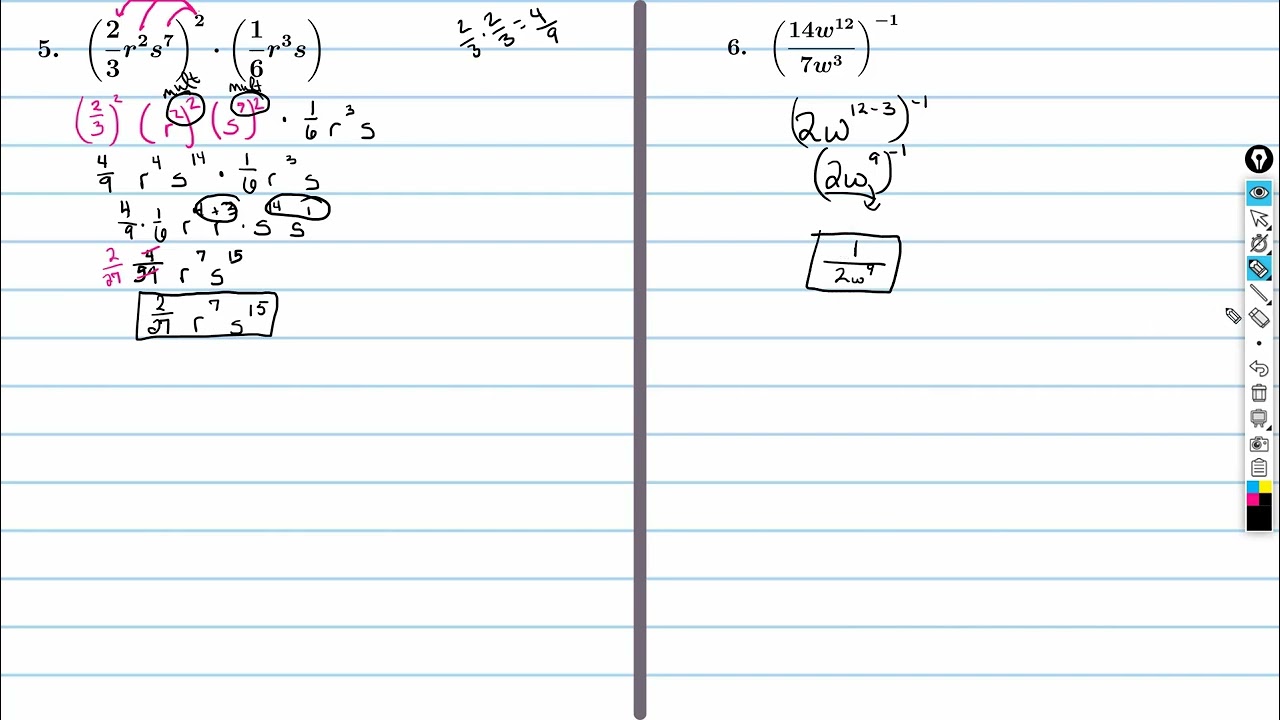 5. (2/3 r²s⁷)² · (1/6 r³s)
2/3 · 2/3 = 4/9
mult mult
(2/3)² (r²)² (s⁷)² · 1/6 r³ s
4/9 r⁴ s¹⁴ · 1/6 r³ s
4/9 · 1/6 r⁴⁺ r³ · s¹⁴ s¹
2/27 4/54 r⁷ s¹⁵
2/27 r⁷ s¹⁵
6. (14w¹²/7w³)⁻¹
(2w¹²⁻³)⁻¹
(2w⁹)⁻¹
1/2w⁹